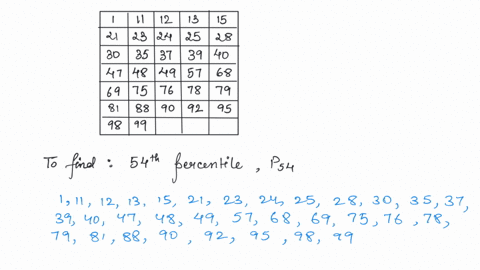 1 11 12 13 15
21 23 24 25 28
30 35 37 39 40
47 48 49 57 68
69 75 76 78 79
81 88 90 92 95
98 99
To find : 54th percentile , P54
1, 11, 12, 13, 15, 21, 23, 24, 25, 28, 30, 35, 37,
39, 40, 47, 48, 49, 57, 68, 69, 75, 76 , 78,
79, 81, 88, 90 , 92, 95 , 98, 99